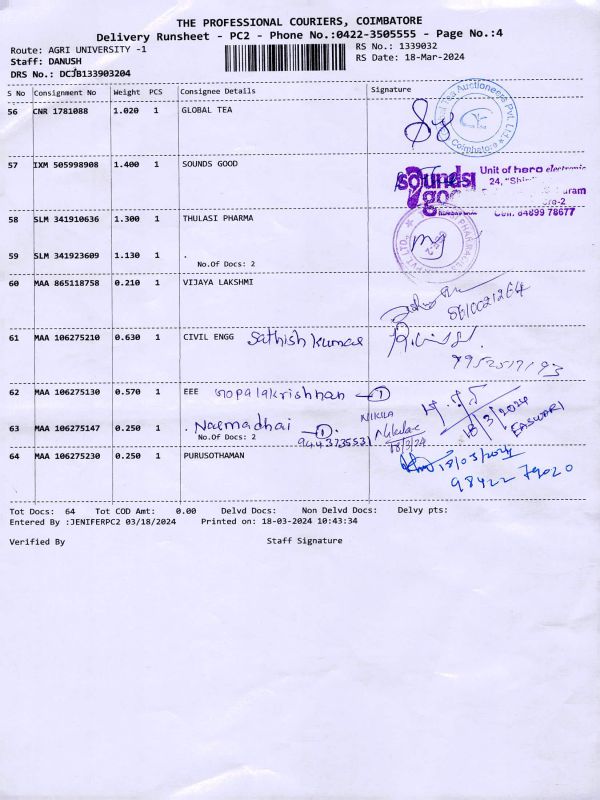 THE PROFESSIONAL COURIERS, COIMBATORE
Delivery Runsheet - PC2 - Phone No.:0422-3505555 - Page No.:4
Route: AGRI UNIVERSITY -1
RS No.: 1339032
Staff: DANUSH
RS Date: 18-Mar-2024
DRS No.: DCJB133903204
S No Consignment No Weight PCS Consignee Details Signature
56 CNR 1781088 1.020 1 GLOBAL TEA
Tea Auctioneers Pvt. Ltd.
Coimbatore
57 IXM 505998908 1.400 1 SOUNDS GOOD
sounds good
Unit of hero electronic
24,
Cell: 84899 78677
58 SLM 341910636 1.300 1 THULASI PHARMA
59 SLM 341923609 1.130 1 .
No.Of Docs: 2
60 MAA 865118758 0.210 1 VIJAYA LAKSHMI
61 MAA 106275210 0.630 1 CIVIL ENGG Sathish kumar
62 MAA 106275130 0.570 1 EEE Gopalakrishnan - 1
18/3/2024
EASWARI
63 MAA 106275147 0.250 1 . Naemadhai - 1
No.Of Docs: 2
9443735531
NIKILA
18/3/24
64 MAA 106275230 0.250 1 PURUSOTHAMAN
18/03/2024
98422 79020
Tot Docs: 64 Tot COD Amt: 0.00 Delvd Docs: Non Delvd Docs: Delvy pts:
Entered By :JENIFERPC2 03/18/2024 Printed on: 18-03-2024 10:43:34
Verified By Staff Signature